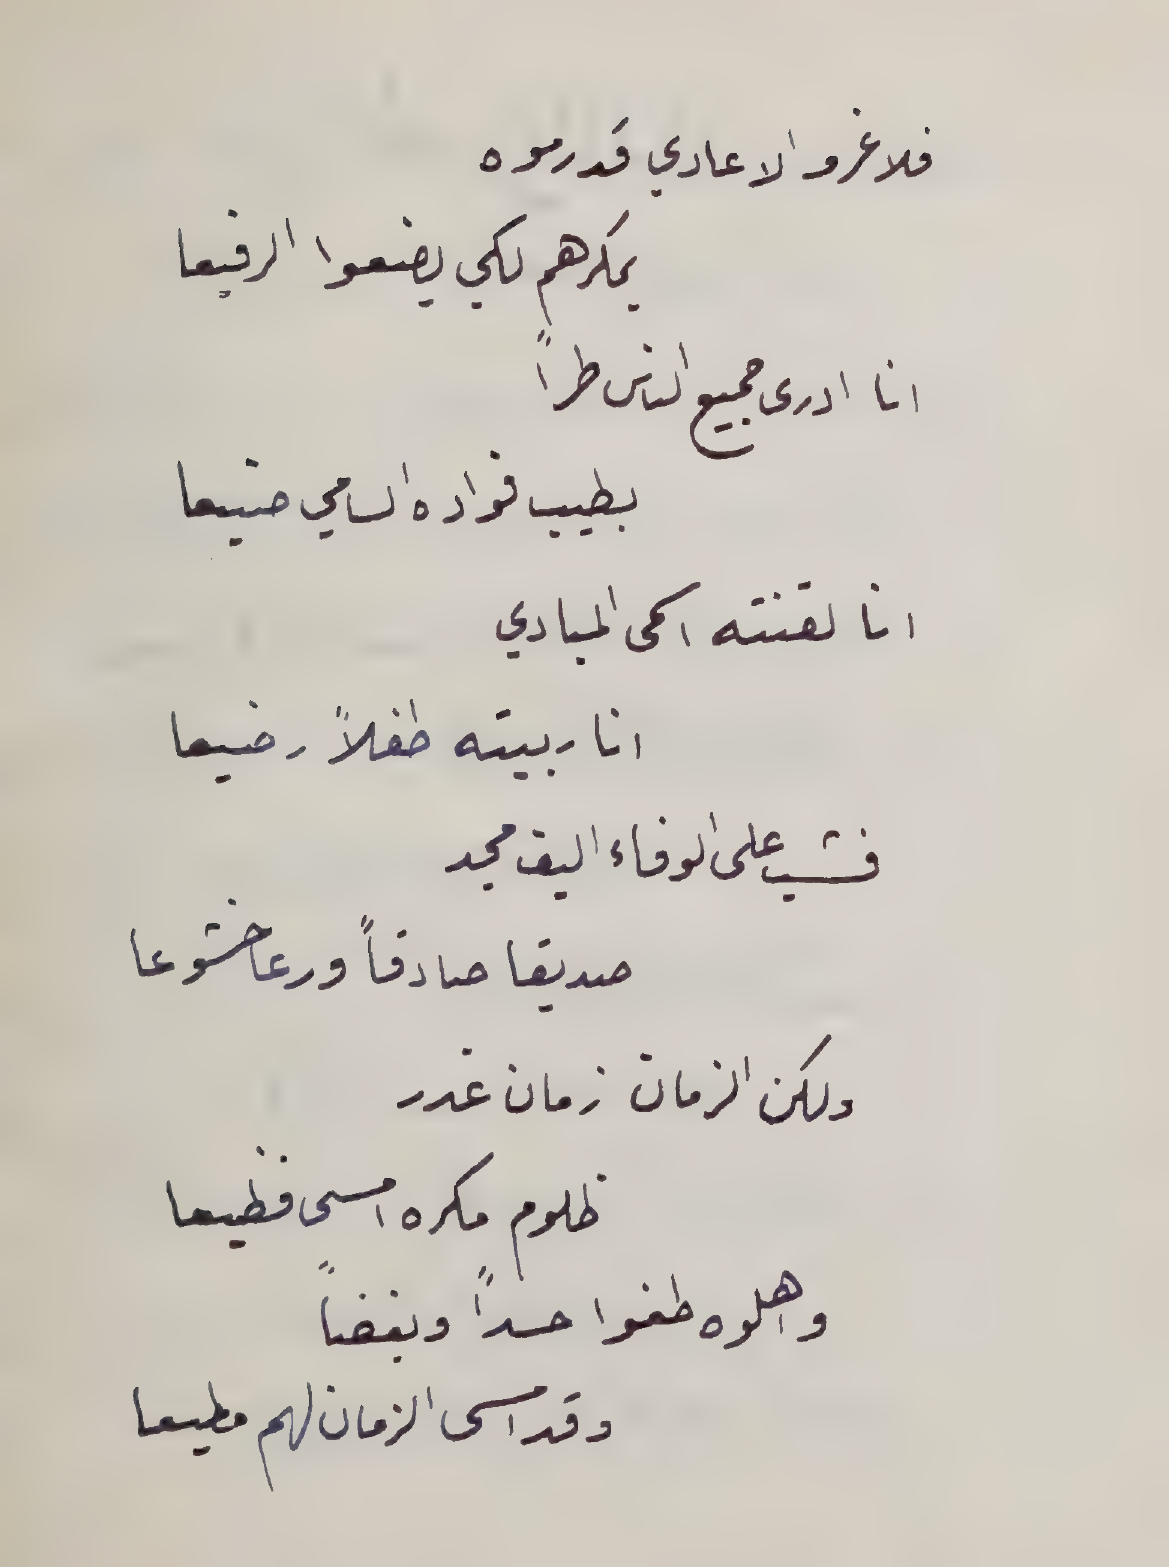 فلا غرو الاعادي قد رموه
بمكرهم لكي يضعوا الرفيعا
انا ادرى جميع الناس طراً
بطيب فواده السامي صنيعا
انا لقنته اسمى المبادي
انا ربيته طفلاً رضيعا
فشب على الوفاء اليف مجد
صديقا صادقاً ورعا خشوعا
ولكن الزمان زمان غدر
ظلوم مكره امسى فظيعا
واهلوه طغوا حسداً وبغضاً
وقد امسى الزمان لهم مطيعا